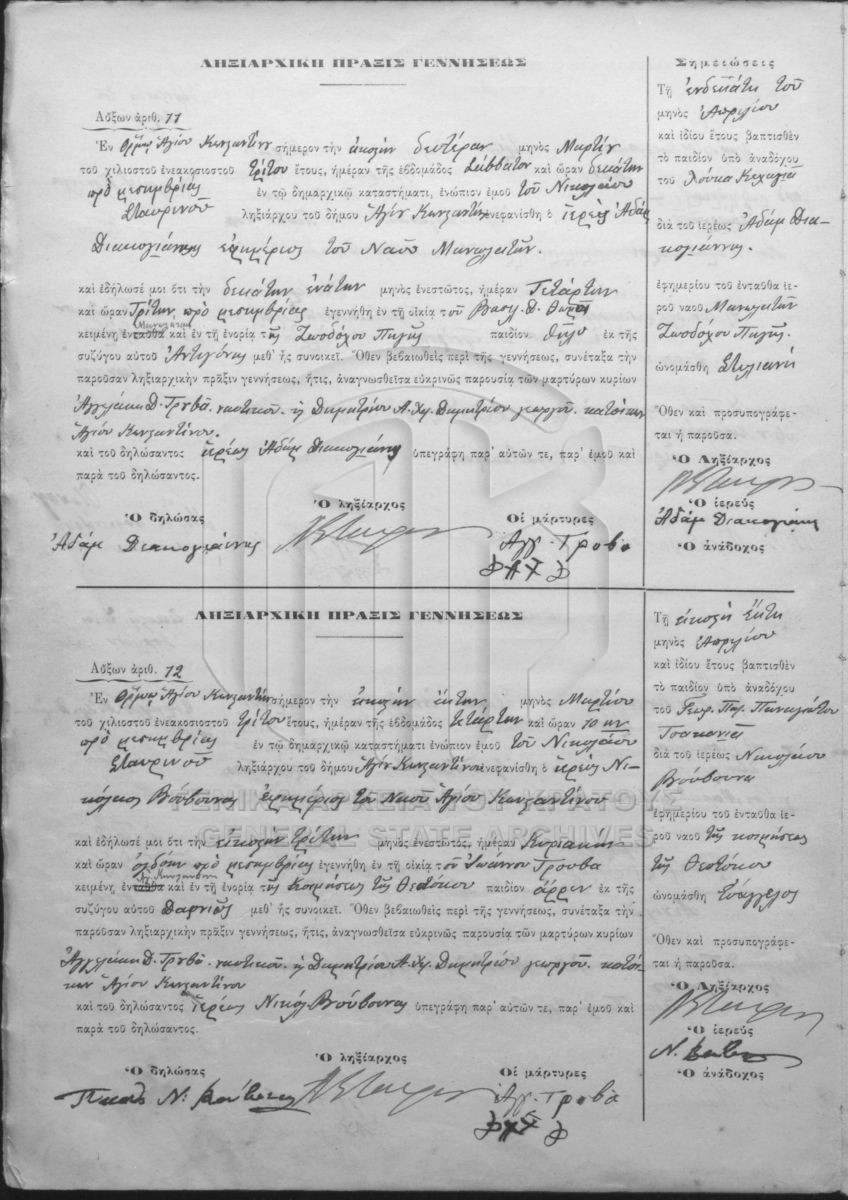 ΛΗΞΙΑΡΧΙΚΗ ΠΡΑΞΙΣ ΓΕΝΝΗΣΕΩΣ
Αὔξων ἀριθ. 11
Ἐν Ὅρμῳ Ἁγίου Κωνσταντίνου σήμερον τὴν εἰκοστὴν δευτέραν μηνὸς Μαρτίου
τοῦ χιλιοστοῦ ἐνεακοσιοστοῦ τρίτου ἔτους, ἡμέραν τῆς ἑβδομάδος Σάββατον καὶ ὥραν δεκάτην
πρὸ μεσημβρίας ἐν τῷ δημαρχικῷ καταστήματι, ἐνώπιον ἐμοῦ τοῦ Νικολάου
Σταυρινοῦ ληξιάρχου τοῦ δήμου Ἁγίου Κωνσταντίνου ἐνεφανίσθη ὁ ἱερεὺς Ἀδὰμ
Διακογιάννης ἐφημέριος τοῦ Ναοῦ Μανωλατῶν.
καὶ ἐδήλωσέ μοι ὅτι τὴν δεκάτην ἐνάτην μηνὸς ἐνεστῶτος, ἡμέραν Τετάρτην
καὶ ὥραν Τρίτην πρὸ μεσημβρίας ἐγεννήθη ἐν τῇ οἰκίᾳ τοῦ Βασιλ. Δ.
κειμένῃ ἐνταῦθα καὶ ἐν τῇ ἐνορίᾳ τῆς Ζωοδόχου Πηγῆς παιδίον θῆλυ ἐκ τῆς
συζύγου αὐτοῦ Ἀντιγόνης μεθ᾽ ἧς συνοικεῖ. Ὅθεν βεβαιωθεὶς περὶ τῆς γεννήσεως, συνέταξα τὴν
παροῦσαν ληξιαρχικὴν πρᾶξιν γεννήσεως, ἥτις, ἀναγνωσθεῖσα εὐκρινῶς παρουσίᾳ τῶν μαρτύρων κυρίων
Ἀγγελάκη Δ. Γρυβᾶ ναυτικοῦ κ Δημητρίου Α. Χ. Δημητρίου γεωργοῦ κατοίκων
Ἁγίου Κωνσταντίνου.
καὶ τοῦ δηλώσαντος ἱερέως Ἀδὰμ Διακογιάννη ὑπεγράφη παρ᾽ αὐτῶν τε, παρ᾽ ἐμοῦ καὶ
παρὰ τοῦ δηλώσαντος.
Ὁ δηλώσας Ὁ ληξίαρχος Οἱ μάρτυρες
Ἀδάμ Διακογιάννης Ἀγ. Γρυβᾶ
Σημειώσεις
Τῇ ἑνδεκάτῃ τοῦ
μηνὸς Ἀπριλίου
καὶ ἰδίου ἔτους βαπτισθὲν
τὸ παιδίον ὑπὸ ἀναδόχου
τοῦ Λουκᾶ Κεχαγιᾶ
διὰ τοῦ ἱερέως Ἀδὰμ Δια-
κογιάννης.
ἐφημερίου τοῦ ἐνταῦθα ἱε-
ροῦ ναοῦ Μανωλατῶν
Ζωοδόχου Πηγῆς.
ὠνομάσθη Στυλιανή
Ὅθεν καὶ προσυπογράφε-
ται ἡ παροῦσα.
Ὁ Ληξίαρχος
Ὁ ἱερεὺς
Ἀδάμ Διακογιάννης
Ὁ ἀνάδοχος
ΛΗΞΙΑΡΧΙΚΗ ΠΡΑΞΙΣ ΓΕΝΝΗΣΕΩΣ
Αὔξων ἀριθ. 12
Ἐν Ὅρμῳ Ἁγίου Κωνσταντίνου σήμερον τὴν εἰκοστὴν ἕκτην μηνὸς Μαρτίου
τοῦ χιλιοστοῦ ἐνεακοσιοστοῦ τρίτου ἔτους, ἡμέραν τῆς ἑβδομάδος τετάρτην καὶ ὥραν 10 ην
πρὸ μεσημβρίας ἐν τῷ δημαρχικῷ καταστήματι ἐνώπιον ἐμοῦ τοῦ Νικολάου
Σταυρινοῦ ληξιάρχου τοῦ δήμου Ἁγίου Κωνσταντίνου ἐνεφανίσθη ὁ ἱερεὺς Νι-
κόλαος Βούβουνας ἐφημέριος τοῦ Ναοῦ Ἁγίου Κωνσταντίνου
καὶ ἐδήλωσέ μοι ὅτι τὴν εἰκοστὴν τρίτην μηνὸς ἐνεστῶτος, ἡμέραν Κυριακὴν
καὶ ὥραν ὀγδόην πρὸ μεσημβρίας ἐγεννήθη ἐν τῇ οἰκίᾳ τοῦ Ἰωάννου Γρυβᾶ
κειμένῃ ἐνταῦθα καὶ ἐν τῇ ἐνορίᾳ τῆς Κοιμήσεως τῆς Θεοτόκου παιδίον ἄρρεν ἐκ τῆς
συζύγου αὐτοῦ μεθ᾽ ἧς συνοικεῖ. Ὅθεν βεβαιωθεὶς περὶ τῆς γεννήσεως, συνέταξα τὴν
παροῦσαν ληξιαρχικὴν πρᾶξιν γεννήσεως, ἥτις, ἀναγνωσθεῖσα εὐκρινῶς παρουσίᾳ τῶν μαρτύρων κυρίων
Ἀγγελάκη Δ. Γρυβᾶ ναυτικοῦ κ Δημητρίου Α. Χ. Δημητρίου γεωργοῦ κατοί-
κων Ἁγίου Κωνσταντίνου
καὶ τοῦ δηλώσαντος ἱερέως Νικολ. Βούβουνας ὑπεγράφη παρ᾽ αὐτῶν τε, παρ᾽ ἐμοῦ καὶ
παρὰ τοῦ δηλώσαντος.
Ὁ δηλώσας Ὁ ληξίαρχος Οἱ μάρτυρες
Ἀγ. Γρυβᾶ
Τῇ εἰκοστῇ ἕκτῃ
μηνὸς Ἀπριλίου
καὶ ἰδίου ἔτους βαπτισθὲν
τὸ παιδίον ὑπὸ ἀναδόχου
τοῦ Γεωρ. Παναγιώτου
διὰ τοῦ ἱερέως Νικολάου
Βούβουνα
ἐφημερίου τοῦ ἐνταῦθα ἱε-
ροῦ ναοῦ τῆς κοιμήσεως
τῆς Θεοτόκου
ὠνομάσθη Εὐάγγελος
Ὅθεν καὶ προσυπογράφε-
ται ἡ παροῦσα.
Ὁ Ληξίαρχος
Ὁ ἱερεὺς
Ὁ ἀνάδοχος
ΓΕΝΙΚΑ ΑΡΧΕΙΑ ΤΟΥ ΚΡΑΤΟΥΣ
GENERAL STATE ARCHIVES